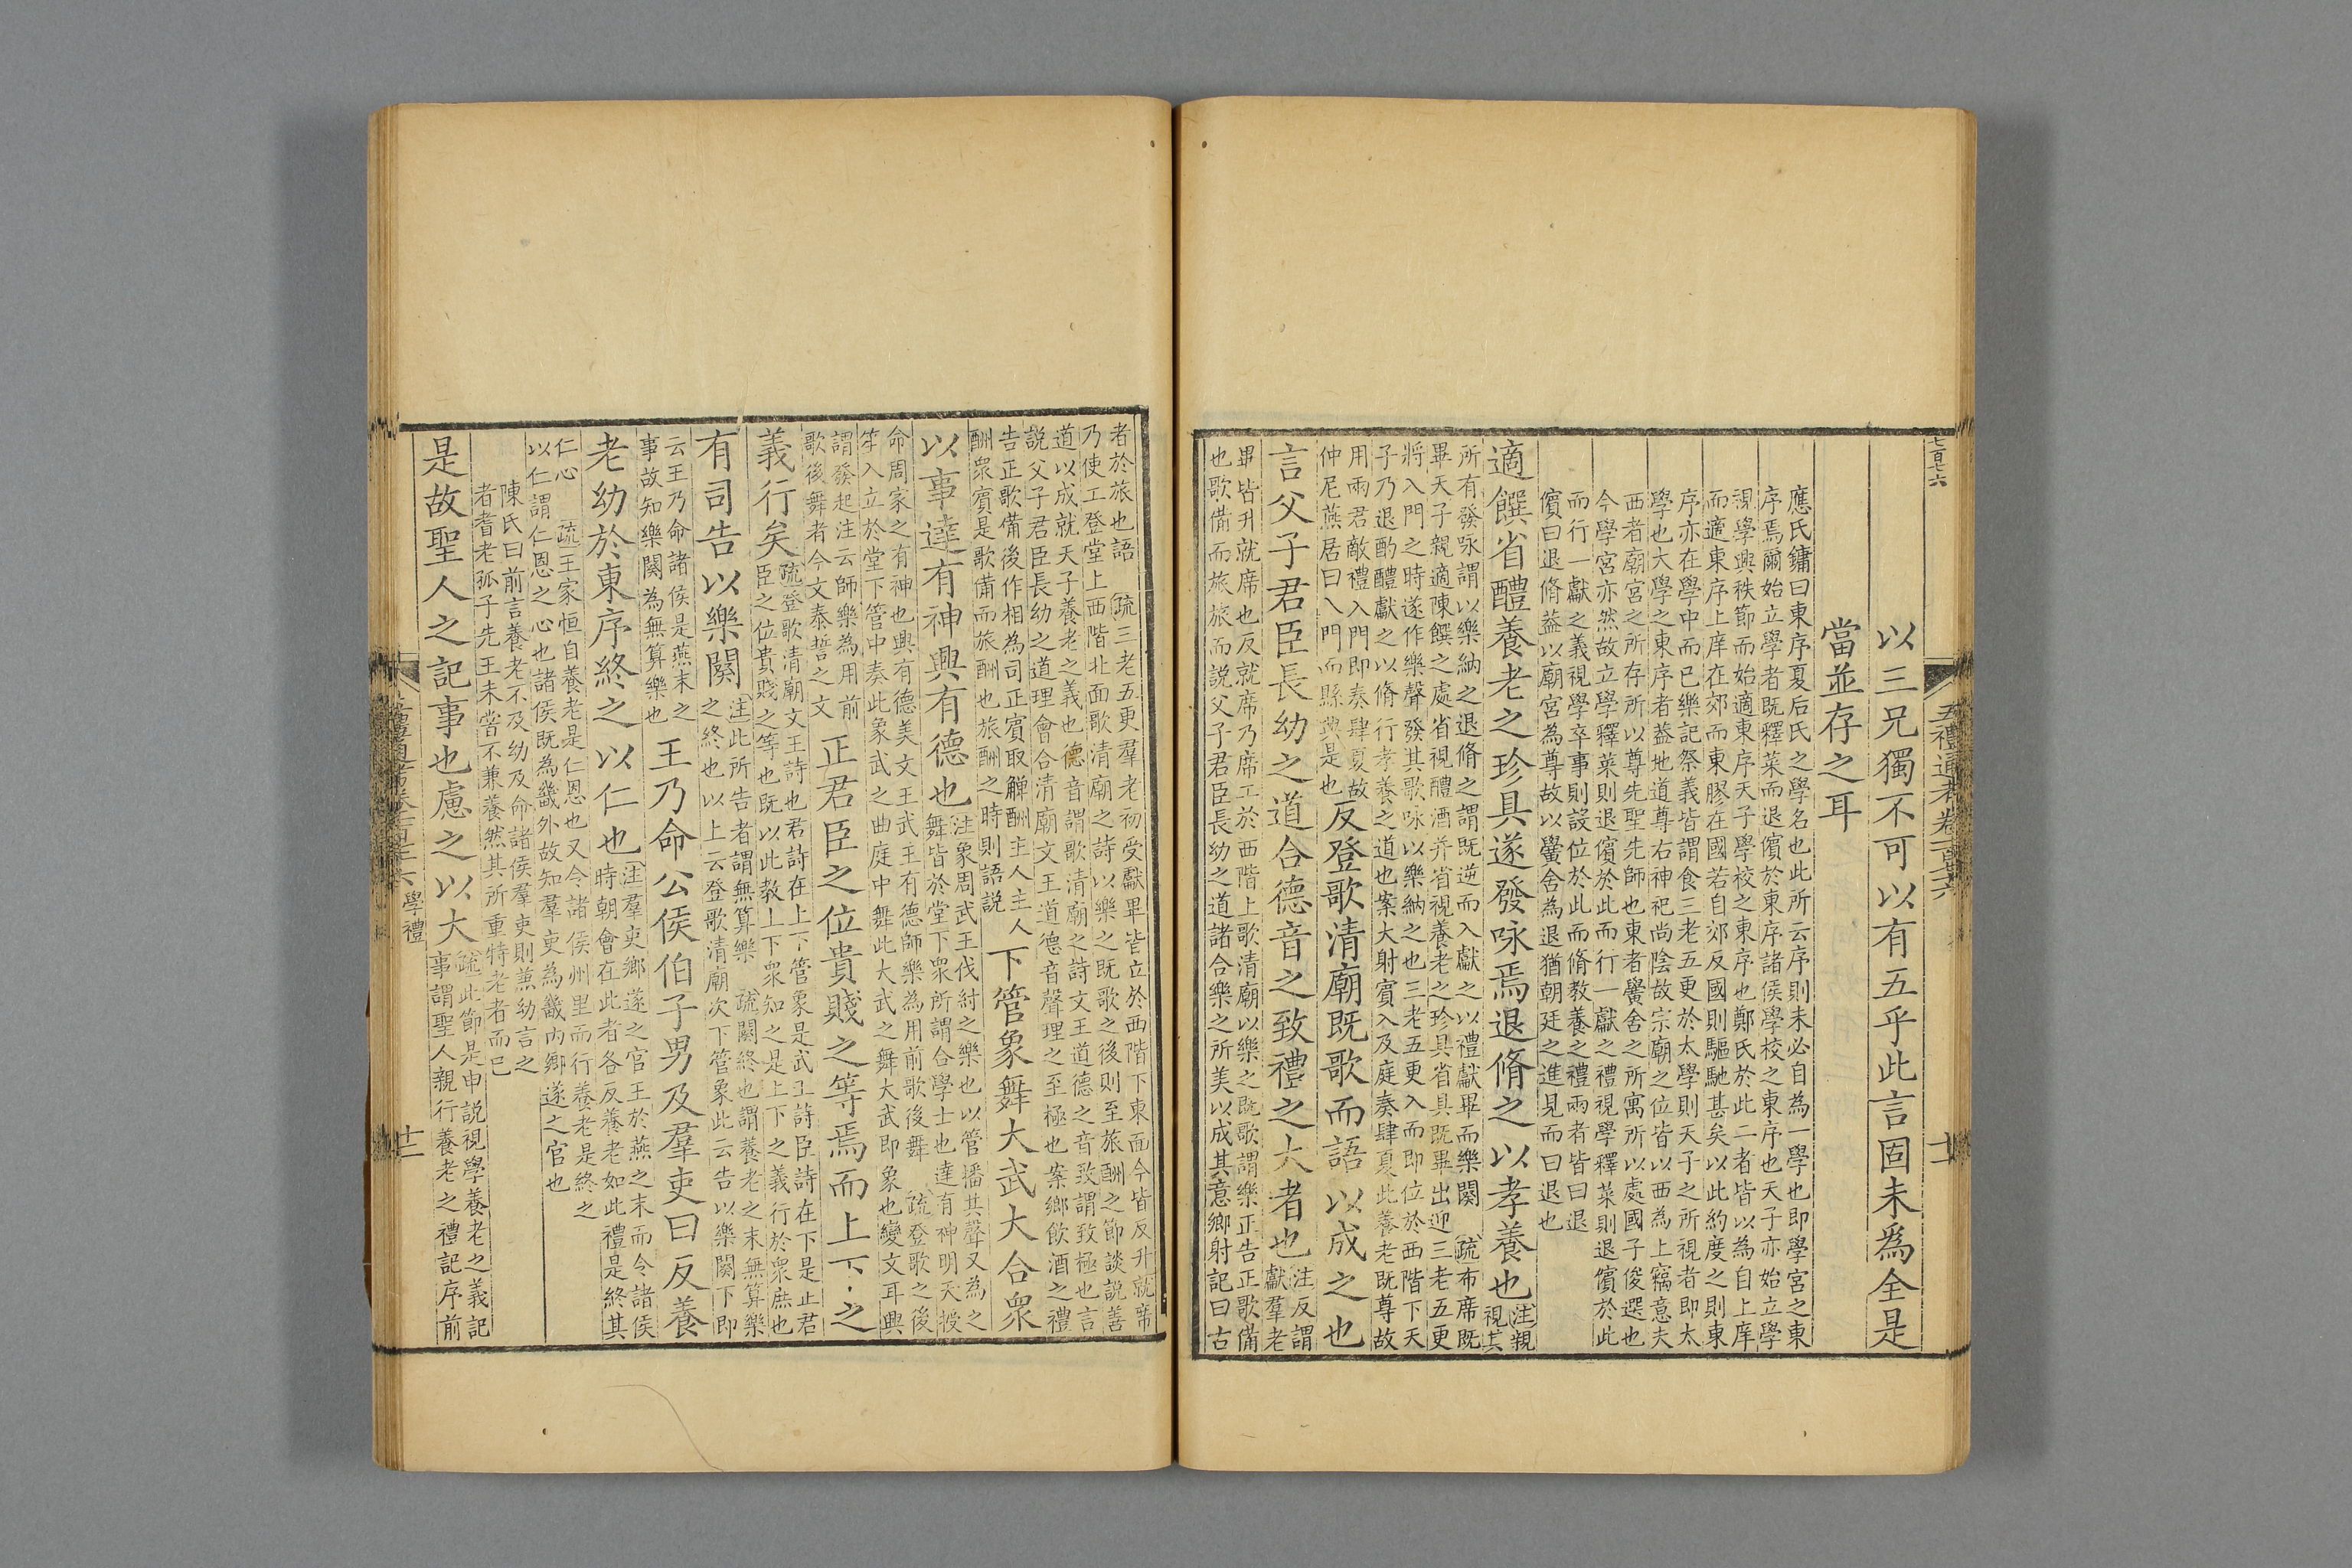 七百七六
五禮通考卷一百七十六
以三兄獨不可以有五乎此言固未爲全是
當並存之耳
應氏鏞曰東序夏后氏之學名也此所云序則未必自為一學也即學宮之東
序焉爾始立學者既釋菜而退儐於東序諸侯學校之東序也天子亦始立學
視學興秩節而始適東序天子學校之東序也鄭氏於此二者皆以為自上庠
而適東序上庠在郊而東膠在國若自郊反國則驅馳甚矣以此約度之則東
序亦在學中而已樂記祭義皆謂食三老五更於太學則天子之所視者即太
學也大學之東序者葢地道尊右神祀尚陰故宗廟之位皆以西為上竊意夫
西者廟宮之所存所以尊先聖先師也東者黌舍之所寓所以處國子俊選也
今學宮亦然故立學釋菜則退儐於此而行一獻之禮視學釋菜則退儐於此
而行一獻之義視學卒事則設位於此而脩教養之禮兩者皆曰退
儐曰退脩葢以廟宮為尊故以黌舍為退猶朝廷之進見而曰退也
適饌省醴養老之珍具遂發咏焉退脩之以孝養也注親視其
所有發咏謂以樂納之退脩之謂既逆而入獻之以禮獻畢而樂闋 疏布席既
畢天子親適陳饌之處省視醴酒并省視養老之珍具省具既畢出迎三老五更
將入門之時遂作樂聲發其歌咏以樂納之也三老五更入而即位於西階下天
子乃退酌醴獻之以脩行孝養之道也案大射賓入及庭奏肆夏此養老既尊故
用兩君敵禮入門即奏肆夏故
仲尼燕居曰入門而縣興是也
反登歌清廟既歌而語以成之也
言父子君臣長幼之道合德音之致禮之大者也注反謂獻羣老
畢皆升就席也反就席乃席工於西階上歌清廟以樂之既歌謂樂正告正歌備
也歌備而旅旅而說父子君臣長幼之道諸合樂之所美以成其意鄉射記曰古
者於旅也語 疏三老五更羣老初受獻畢皆立於西階下東面今皆反升就席
乃使工登堂上西階北面歌清廟之詩以樂之既歌之後則至旅酬之節談說善
道以成就天子養老之義也德音謂歌清廟之詩文王道德之音致謂致極也言
說父子君臣長幼之道理會合清廟文王道德音聲理之至極也案鄉飲酒之禮
告正歌備後作相為司正賓取觶酬主人主人
酬衆賓是歌備而旅酬也旅酬之時則語說
下管象舞大武大合衆
以事達有神興有德也注象周武王伐紂之樂也以管播其聲又為之
舞皆於堂下衆所謂合學士也達有神明天授
命周家之有神也興有德美文王武王有德師樂為用前歌後舞 疏登歌之後
笙入立於堂下管中奏此象武之曲庭中舞此大武之舞大武即象也變文耳興
謂發起注云師樂為用前
歌後舞者今文泰誓之文
正君臣之位貴賤之等焉而上下之
義行矣疏登歌清廟文王詩也君詩在上下管象是武王詩臣詩在下是正君
臣之位貴賤之等也既以此教上下衆知之是上下之義行於衆庶也
有司告以樂闋注此所告者謂無算樂 疏闋終也謂養老之末無算樂
之終也以上云登歌清廟次下管象此云告以樂闋下即
云王乃命諸侯是燕末之
事故知樂闋為無算樂也
王乃命公侯伯子男及羣吏曰反養
老幼於東序終之以仁也注羣吏鄉遂之官王於燕之末而今諸侯
時朝會在此者各反養老如此禮是終其
仁心 疏王家恒自養老是仁恩也又令諸侯州里而行養老是終之
以仁謂仁恩之心也諸侯既為畿外故知羣吏為畿內鄉遂之官也
陳氏曰前言養老不及幼及命諸侯羣吏則兼幼言之
者耆老孤子先王未嘗不兼養然其所重特老者而已
是故聖人之記事也慮之以大疏此節是申説視學養老之義記
事謂聖人親行養老之禮記序前
學禮
十二